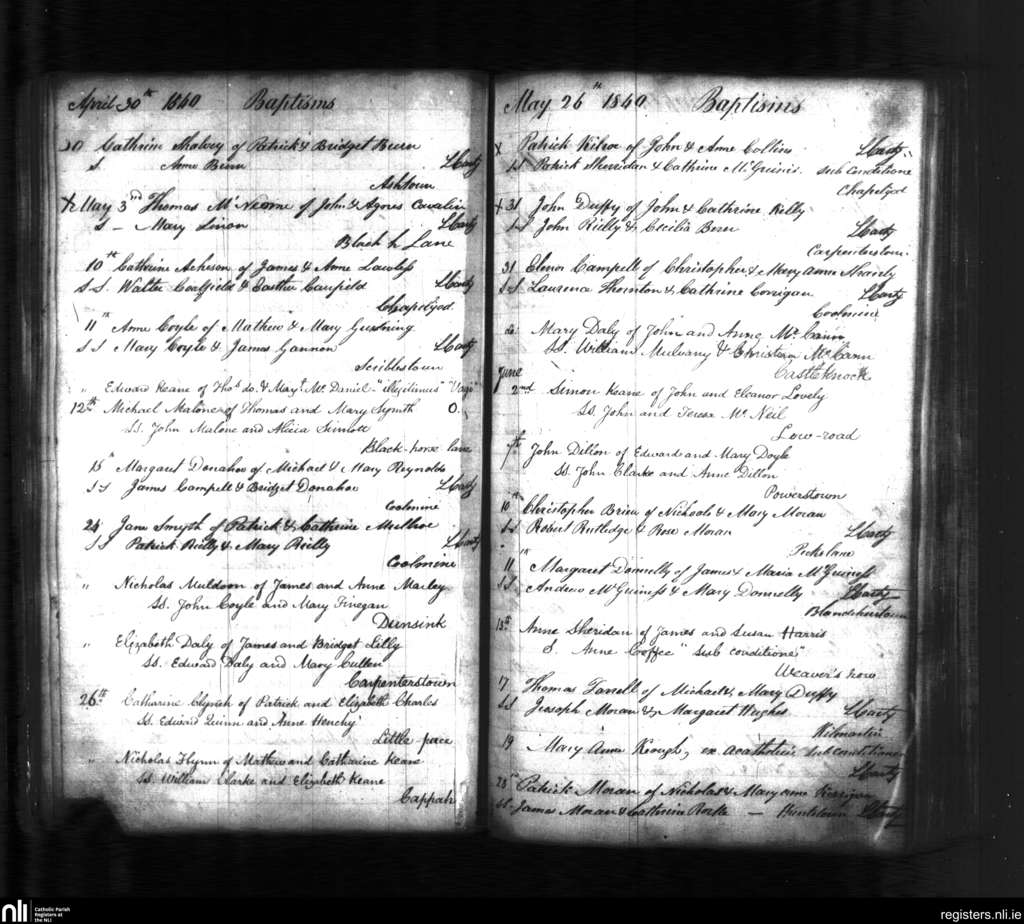 April 30th 1840 Baptisms
30 Cathrine Shalvey of Patrick & Bridget Burn
S. Anne Burn LCarty
Ashtown
May 3rd Thomas McNeome of John & Agnes Cavalin
S — Mary Linon LCarty
Black h Lane
10th Cathrine Acheson of James & Anne Lawless
SS. Walter Coalfield & Easther Caufield LCarty
Chapelizod
11th Anne Coyle of Mathew & Mary
SS Mary Coyle & James Gannon LCarty
Scribblestown
" Edward Keane of Thos do. & Mary McDaniel "illegitimus"
12th Michael Malone of Thomas and Mary Smyth O.
SS. John Malone and Alicia Sinnott
Black-horse lane
15th Margaret Donahoe of Michael & Mary Reynolds
SS James Campell & Bridget Donahoe LCarty
Coolmine
24 Jane Smyth of Patrick & Cathrine
SS Patrick Reilly & Mary Reilly LCarty
Coolmine
" Nicholas Muldoon of James and Anne Marley
SS. John Coyle and Mary Finegan
Dunsink
" Elizabeth Daly of James and Bridget Lilly
SS. Edward Daly and Mary Cullen
Carpenterstown
26th Catharine Clynch of Patrick and Elizabeth Charles
SS. Edward Quinn and Anne Henchy
Little-pace
" Nicholas Flynn of Mathew and Catharine Keane
SS. William Clarke and Elizabeth Keane
Cappah
May 26th 1840 Baptisms
x Patrick Kilroe of John & Anne Collins LCarty
SS Patrick Sherridan & Cathrine McGuinis. sub Conditione
Chapelizod
x 31 John Duffy of John & Cathrine Kelly
SS John Rielly & Cecilia LCarty
Carpenterstown
31 Elenor Campell of Christopher & Mary Anne
SS Laurence Thornton & Cathrine Corrigan LCarty
Coolmine
do. Mary Daly of John and Anne McCann
SS. William Mulvany & Christian McCann
Castleknock
June
2nd Simon Keane of John and Eleanor Lovely
SS. John and Teresa McNeil
Low-road
7th John Dillon of Edward and Mary Doyle
SS. John Clarke and Anne Dillon
Powerstown
10th Christopher Brien of Nichools & Mary Moran
SS Robert Rutlidge & Rose Moran LCarty
Pecks lane
11th Margaret Donnelly of James & Maria McGuiness
SS Andrew McGuiness & Mary Donnelly LCarty
Blanchardstown
13th Anne Sheridan of James and Susan Harris
S. Anne Coffee "sub conditione"
Weaver's row
17 Thomas Farrell of Michael & Mary Duffy
SS Joesoph Moran & Margaret Hughes LCarty
Kilmartin
19 Mary Anne Keough, ex acatholicis sub conditione
LCarty
28th Patrick Moran of Nicholas & Mary anne Kerrigan
SS James Moran & Cathrine Rorke — LCarty
nli Catholic Parish
Registers at
the NLI
registers.nli.ie